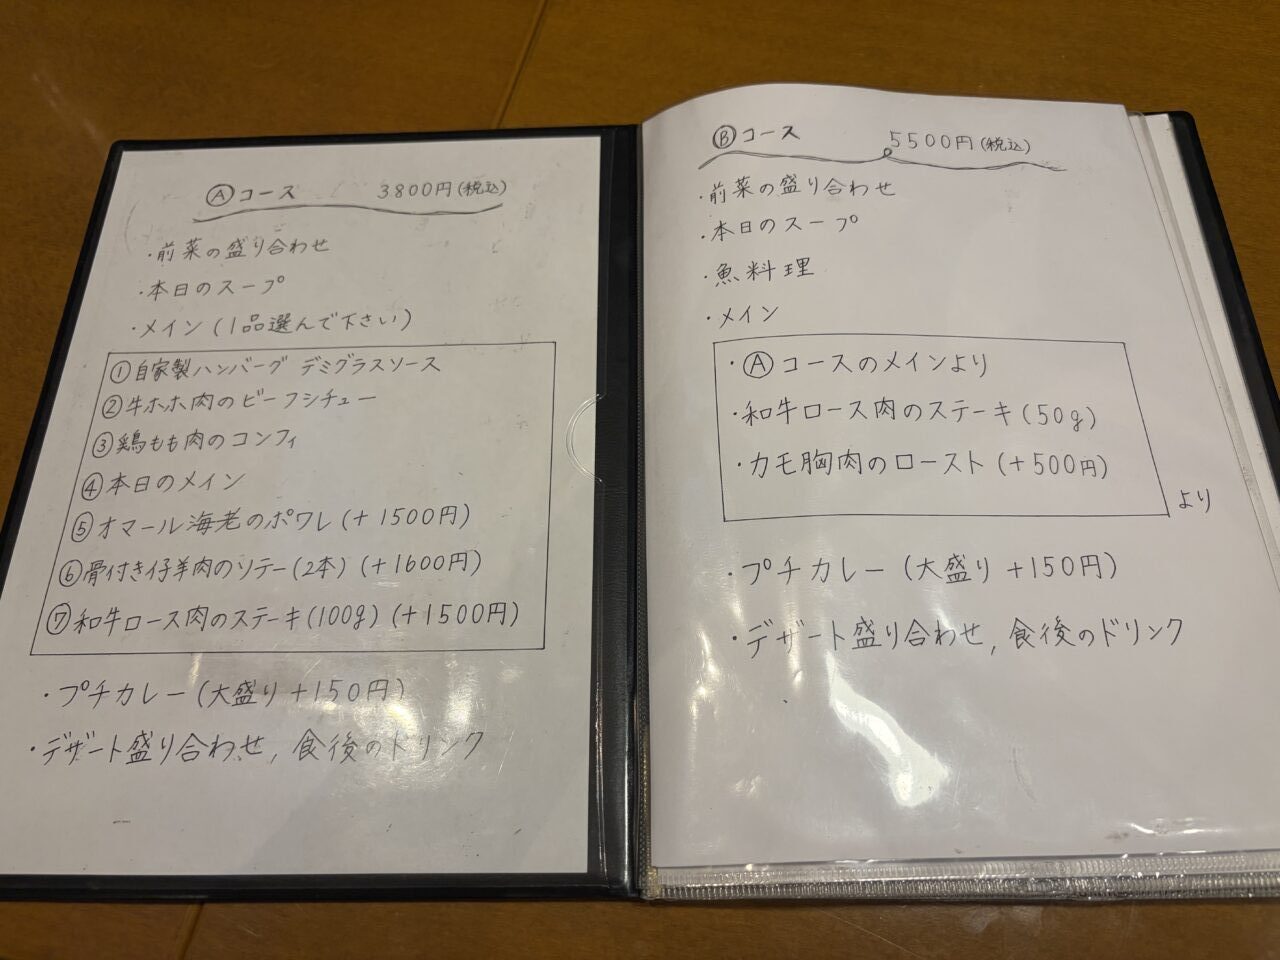 Ⓐコース 3800円(税込)
・前菜の盛り合わせ
・本日のスープ
・メイン(1品選んで下さい)
①自家製ハンバーグ デミグラスソース
②牛ホホ肉のビーフシチュー
③鶏もも肉のコンフィ
④本日のメイン
⑤オマール海老のポワレ(+1500円)
⑥骨付き仔羊肉のソテー(2本)(+1600円)
⑦和牛ロース肉のステーキ(100g)(+1500円)
・プチカレー(大盛り+150円)
・デザート盛り合わせ,食後のドリンク
Ⓑコース 5500円(税込)
・前菜の盛り合わせ
・本日のスープ
・魚料理
・メイン
・Ⓐコースのメインより
・和牛ロース肉のステーキ(50g)
・カモ胸肉のロースト(+500円)
より
・プチカレー(大盛り+150円)
・デザート盛り合わせ,食後のドリンク